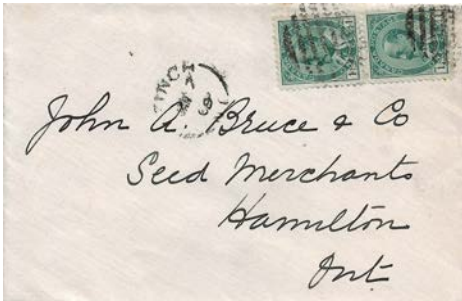 FINCH
A
John A. Bruce & Co
Seed Merchants
Hamilton
Ont